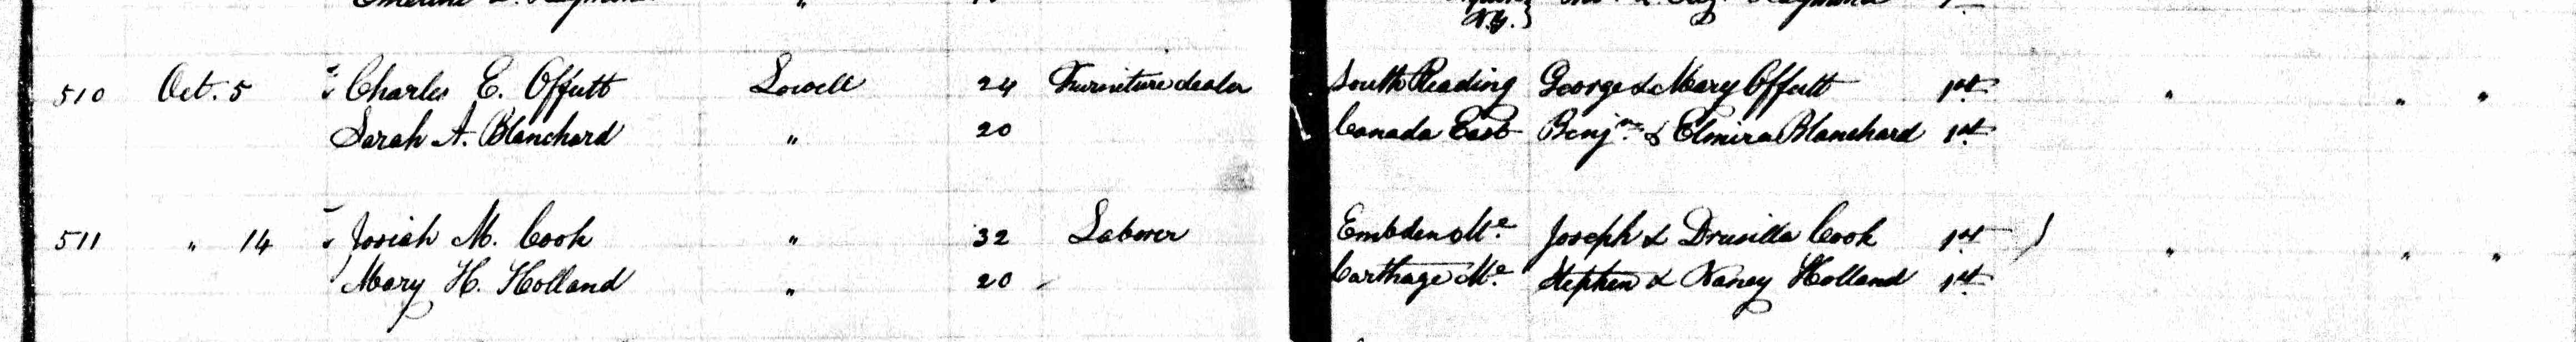 N.Y.}
510 Oct. 5 Charles E. Offutt Lowell 24 Furniture dealer South Reading George & Mary Offutt 1st " " "
Sarah A. Blanchard " 20 Canada East Benjn. & Elmira Blanchard 1st
511 " 14 Josiah M. Cook " 32 Laborer Embden Me. Joseph & Drusilla Cook 1st " " "
Mary H. Holland " 20 Carthage Me. Stephen & Nancy Holland 1st